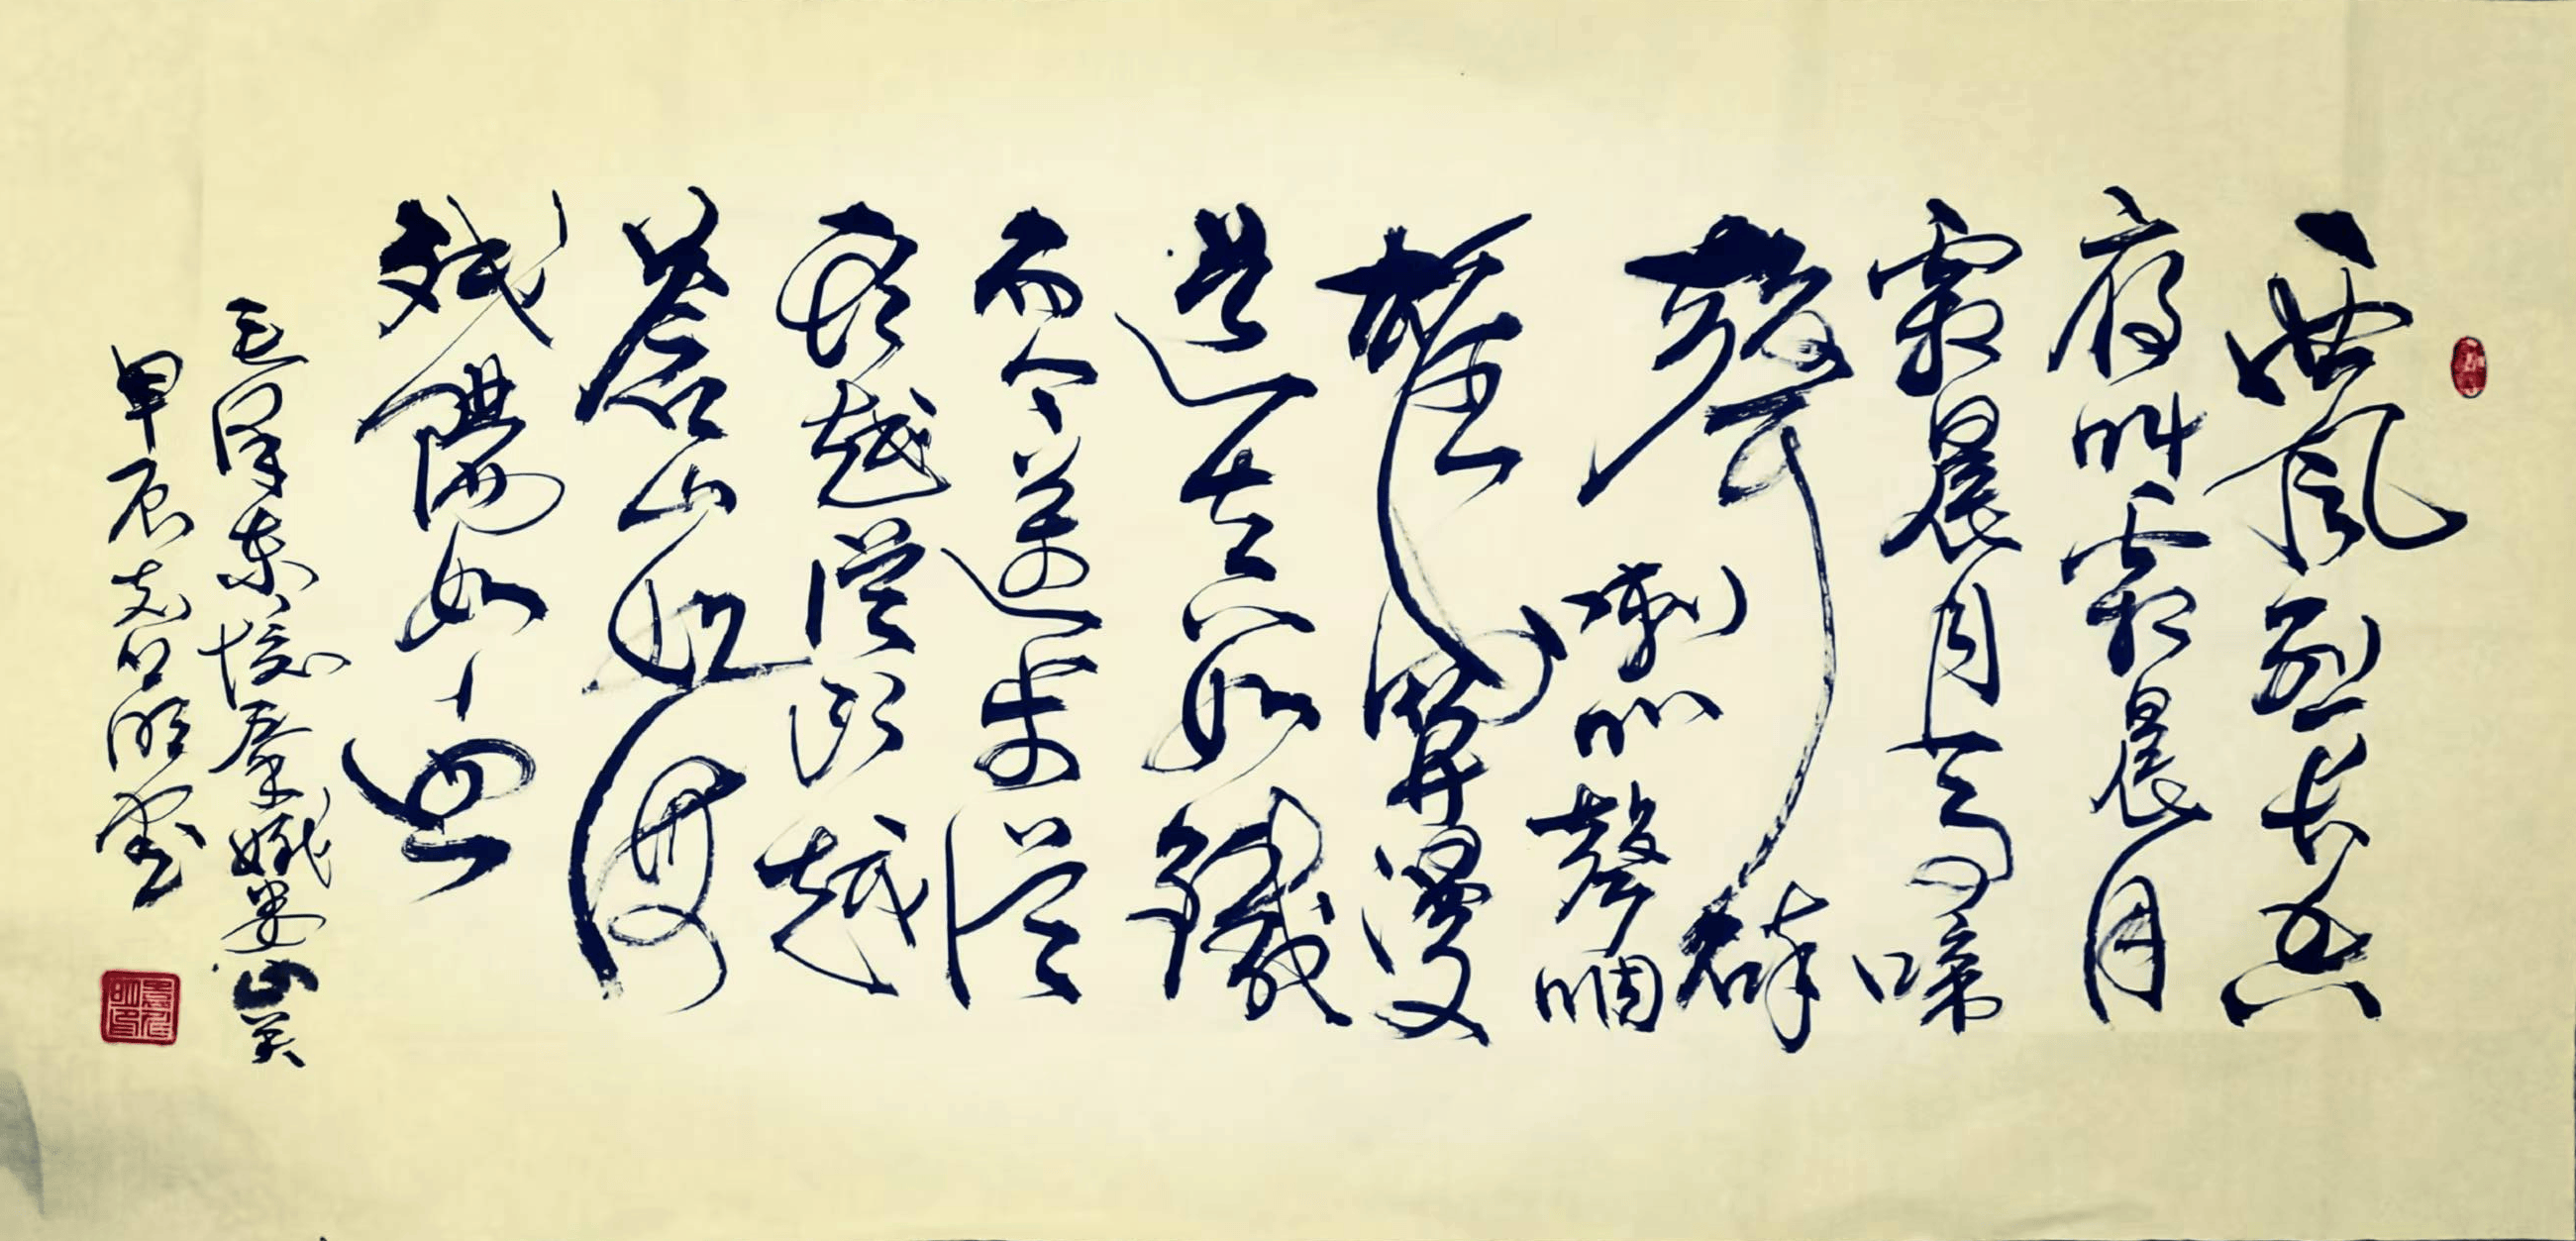 西風烈長空
雁叫霜晨月
霜晨月馬啼
聲碎
喇叭聲咽
雄關漫
道真如鐵
而今邁步從
頭越從頭越
蒼山如海
殘陽如血
毛澤東憶秦娥婁山关
甲辰明書